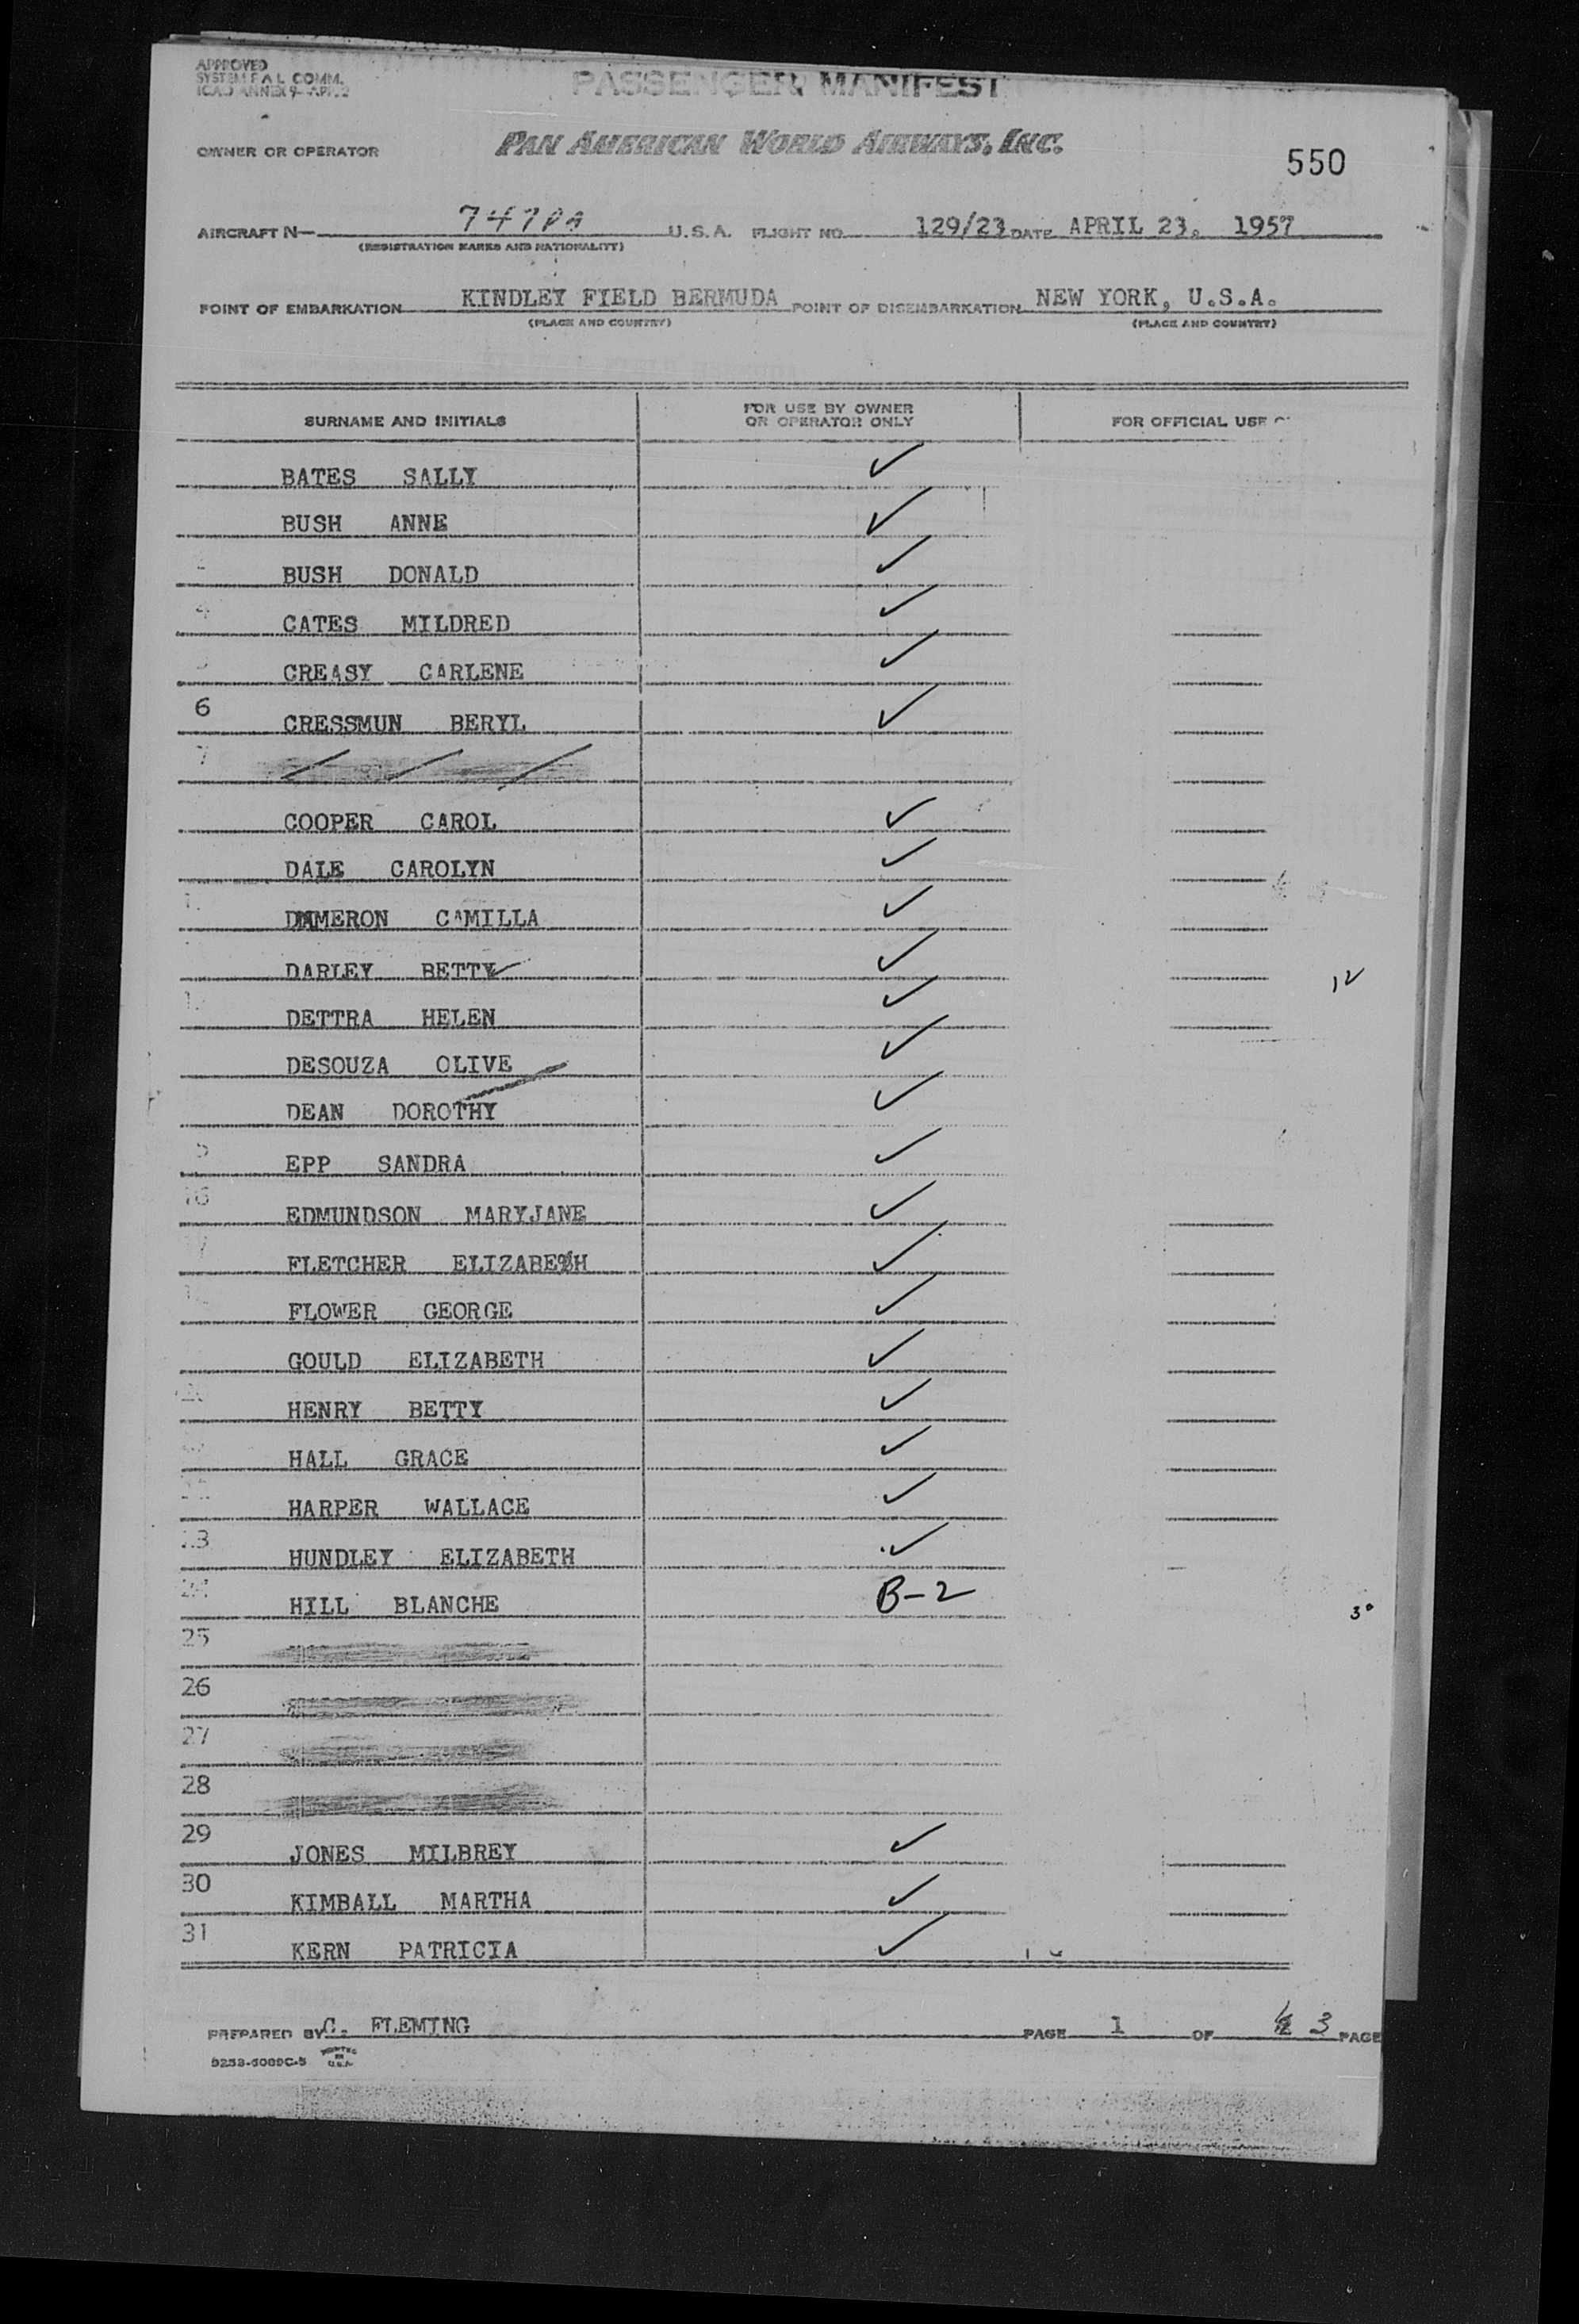 APPROVED
SYSTEM F A L COMM.
ICAO ANNEX 9
PASSENGER MANIFEST
OWNER OR OPERATOR PAN AMERICAN WORLD AIRWAYS, INC.
550
AIRCRAFT N— 747PA U.S.A. FLIGHT NO. 129/23 DATE APRIL 23. 1957
(REGISTRATION MARKS AND NATIONALITY)
POINT OF EMBARKATION KINDLEY FIELD BERMUDA POINT OF DISEMBARKATION NEW YORK, U.S.A.
(PLACE AND COUNTRY) (PLACE AND COUNTRY)
SURNAME AND INITIALS FOR USE BY OWNER OR OPERATOR ONLY FOR OFFICIAL USE
BATES SALLY ✓
BUSH ANNE ✓
BUSH DONALD ✓
4 CATES MILDRED ✓
CREASY CARLENE ✓
6 CRESSMUN BERYL ✓
7
COOPER CAROL ✓
DALE CAROLYN ✓
DAMERON CAMILLA ✓
DARLEY BETTY ✓ 12
DETTRA HELEN ✓
DESOUZA OLIVE ✓
DEAN DOROTHY ✓
5 EPP SANDRA ✓
16 EDMUNDSON MARYJANE ✓
17 FLETCHER ELIZABETH ✓
FLOWER GEORGE ✓
GOULD ELIZABETH ✓
HENRY BETTY ✓
HALL GRACE ✓
HARPER WALLACE ✓
23 HUNDLEY ELIZABETH ✓
24 HILL BLANCHE B-2 30
25
26
27
28
29 JONES MILBREY ✓
30 KIMBALL MARTHA ✓
31 KERN PATRICIA ✓
PREPARED BY C. FLEMING PAGE 1 OF 3 PAGE
9253-6009C-5 PRINTED IN U.S.A.